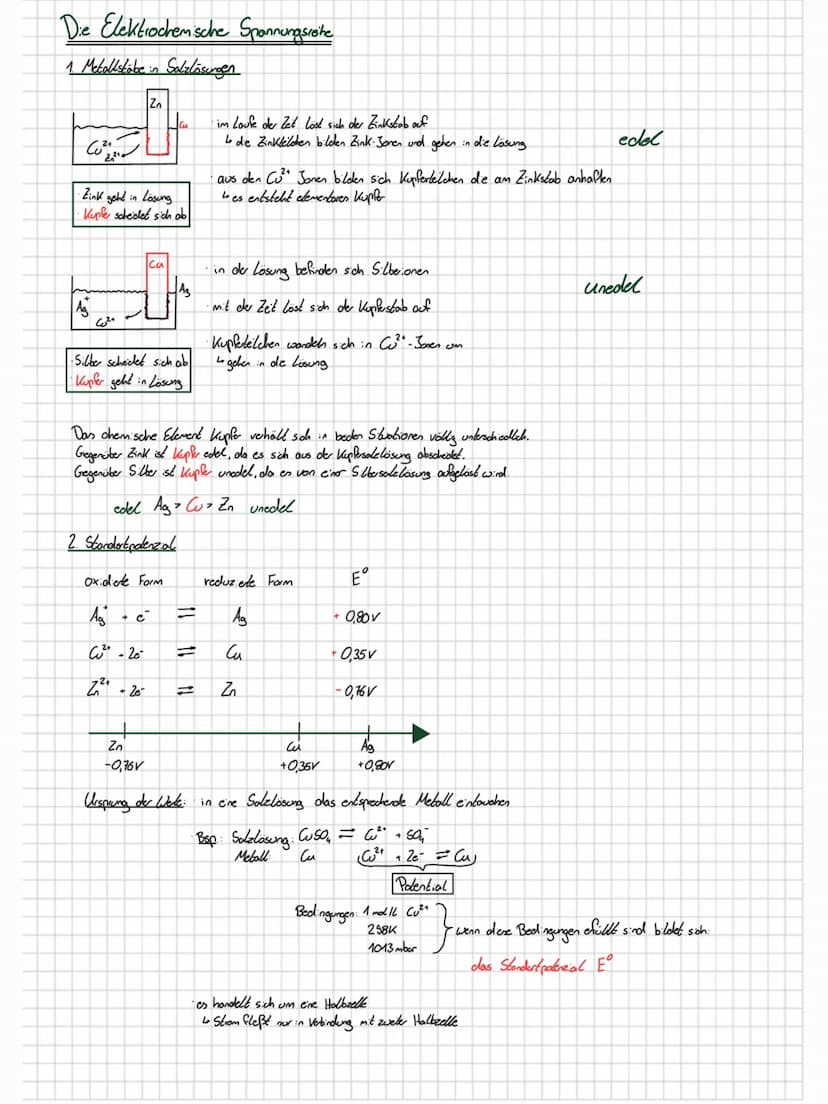 Die Elektrochemische Spannungsreihe
1. Metallstäbe in Salzlösungen
Zn
Cu
Cu²⁺
Zn²⁺
· im Laufe der Zeit löst sich der Zinkstab auf
↳ die Zinkteilchen bilden Zink-Ionen und gehen in die Lösung
edel
· aus den Cu²⁺ Ionen bilden sich Kupferteilchen die am Zinkstab anhaften
↳ es entsteht elementares Kupfer
· Zink geht in Lösung
· Kupfer scheidet sich ab
Cu
Ag
Ag⁺
Cu²⁺
· in der Lösung befinden sich Silberionen
unedel
· mit der Zeit löst sich der Kupferstab auf
· Kupferteilchen wandeln sich in Cu²⁺-Ionen um
↳ gehen in die Lösung
· Silber scheidet sich ab
· Kupfer geht in Lösung
Das chemische Element Kupfer verhält sich in beiden Situationen völlig unterschiedlich.
Gegenüber Zink ist Kupfer edel, da es sich aus der Kupfersalzlösung abscheidet.
Gegenüber Silber ist Kupfer unedel, da es von einer Silbersalzlösung aufgelöst wird.
edel Ag > Cu > Zn unedel
2. Standartpotenzial
oxidierte Form reduzierte Form E⁰
Ag⁺ + e⁻ ⇌ Ag + 0,80V
Cu²⁺ + 2e⁻ ⇌ Cu + 0,35V
Zn²⁺ + 2e⁻ ⇌ Zn - 0,76V
Zn Cu Ag
-0,76V +0,35V +0,80V
Ursprung der Werte: in eine Salzlösung das entsprechende Metall eintauchen
Bsp.: Salzlösung: CuSO₄ ⇌ Cu²⁺ + SO₄⁻
Metall: Cu (Cu²⁺ + 2e⁻ ⇌ Cu)
Potential
Bedingungen: 1 mol/L Cu²⁺
298K
1013 mbar
wenn diese Bedingungen erfüllt sind bildet sich:
das Standartpotenzial E⁰
· es handelt sich um eine Halbzelle
↳ Strom fließt nur in Verbindung mit zweiter Halbzelle